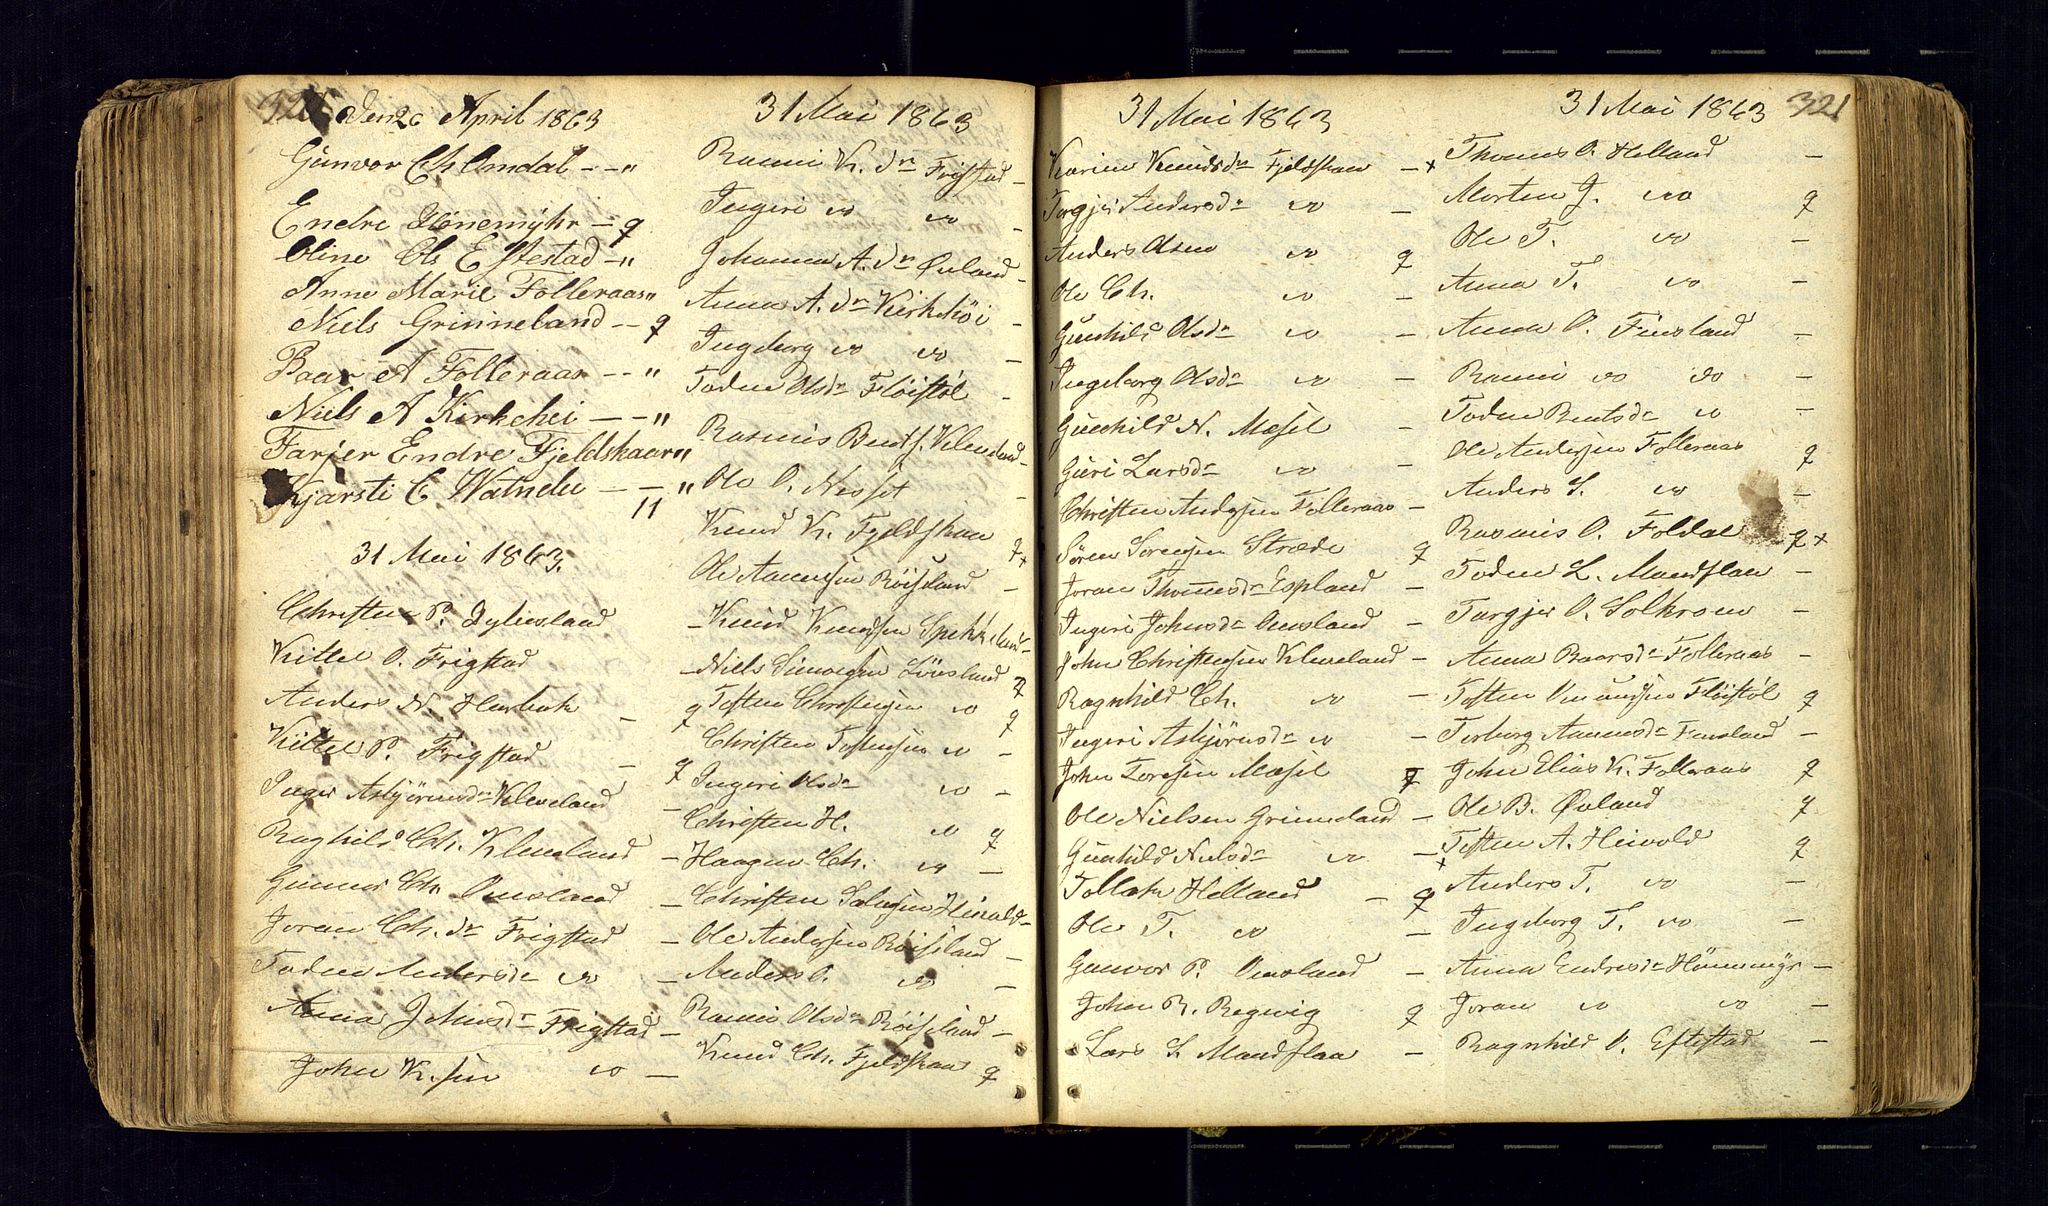 320 Den 26 April 1863
Gunvor Ch Omdal - - "
Endre Hönemÿhr - q
Oline Ols Eftestad - "
Anne Marie Folleraas "
Niels Grinneland - - q
Baar A Folleraas - - "
Niels A Kirkehei - - "
Tarjer Endre Fjeldskaar "
Kjersti C Watnelie - - "
11
31 Mai 1863.
Christen P.
Kittel O. Frigstad
Anders N. Harbak -
Kittel P. Frigstad -
Inger Asbjörnsdr Kleveland
Raghild Ch. Kleveland
Gunner Ch. Omsland
Joran Ch. dr Frigstad
Todne Andersdr do
Anna Johnsdr Frigstad -
John K.sen do -
31 Mai 1863
Rannei K. dr Frigstad -
Ingeri do do -
Johanna A. dr Øvland -
Anna A. dr Kirkehöi -
Ingeborg do do -
Todne Olsdr Flöistöl -
Rasmus Bents. Kleveland -
Ole O. Nesset -
Knud K. Fjeldskaar q x
Ole Aanensen Röiseland -
- Knud Knudsen
- Niels Simonsen Lövsland q
q Tosten Christensen do q
Christen Tostensen do -
q Ingeri Olsdr do -
- Christen H. do q
- Haagen Ch. do -
- Christen Salvesen Heivold -
- Ole Andersen Röiseland -
- Anders O. do -
Rannei Olsdr Röiseland -
Knud Ch. Fjeldskaar q
31 Mai 1863
Karine Knudsdr Fjeldskaar - x
Torgjer Andersdr do -
Anders Olsen do q
Ole Ch. do -
Gunhild Olsdr do -
Ingeborg Olsdr do -
Gunhild N. Mæsel -
Guri Larsdr do -
Christen Andersen Folleraas -
Sören Sörensen Stræde q
Joran Thomesdr Espland -
Ingeri Johnsdr Omsland -
John Christensen Kleveland -
Ragnhild Ch. do -
Ingeri Asbjörnsdr do -
John Toresen Mæsel q
Ole Nielsen Grinneland -
Gunhild Nielsdr do - x
Tollak Helland - q
Ole T. do -
Gunvor P. Omsland -
John R. Regevig q
Lars L. Mandflaa -
31 Mai 1863 321
Thomas O. Helland -
Morten J. do q
Ole T. do -
Anna T. do -
Anna O. Finsland -
Rannei do do -
Todne Bentsdr do -
Ole Andersen Folleraas q
Anders L. do -
Rasmus O. Foldal q x
Todne L. Mandflaa -
Torgjer O. Solkrom -
Anna Baarsdr Folleraas -
Tosten Omundsen Flöistöl q
Torborg Aanensdr Finsland -
John Elias K. Folleraas q
Ole B. Øvland q
Tosten A. Heivold q
Anders T. do -
Ingeborg T. do -
Anna Endresdr Hönnemÿr -
Joran do do -
Ragnhild O. Eftestad -